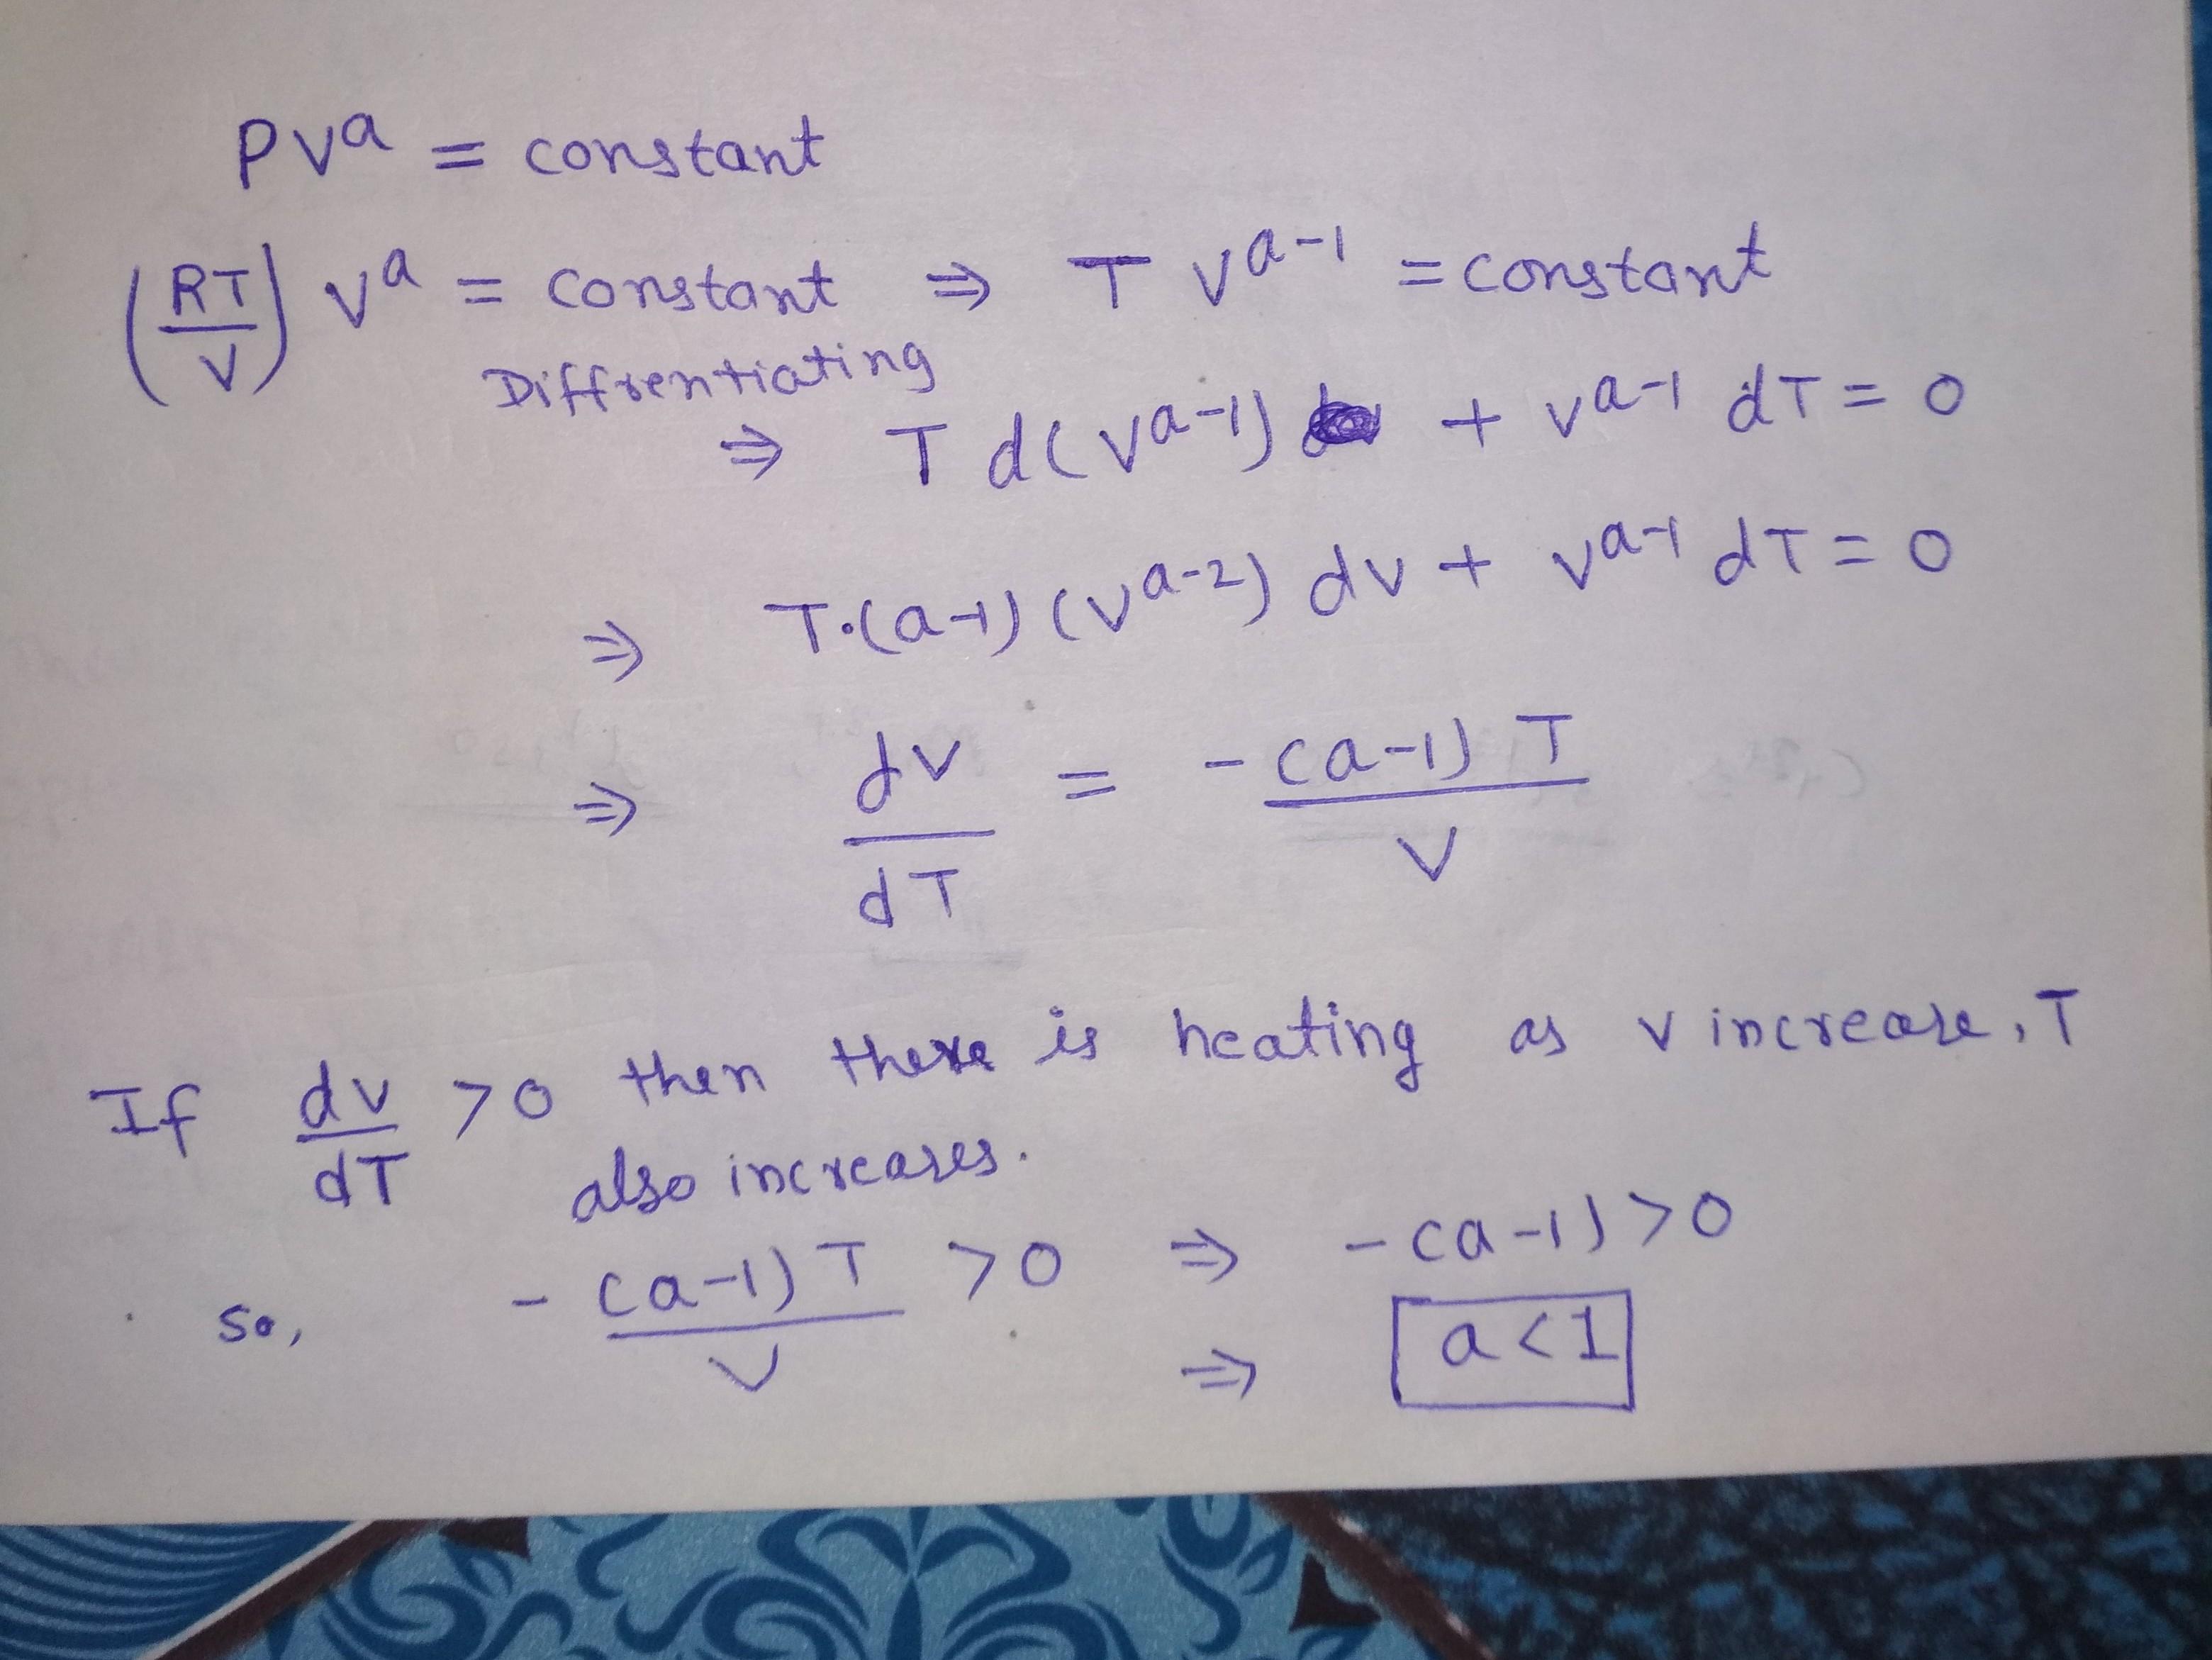 PV^a = constant
(RT/V) V^a = constant ⇒ T V^(a-1) = constant
Diffrentiating
⇒ T d(V^(a-1)) + V^(a-1) dT = 0
⇒ T.(a-1) (V^(a-2)) dV + V^(a-1) dT = 0
⇒ dV/dT = -(a-1) T/V
If dV/dT > 0 then there is heating as V increase, T
also increases.
so, -(a-1) T/V > 0 ⇒ -(a-1) > 0
⇒ a < 1